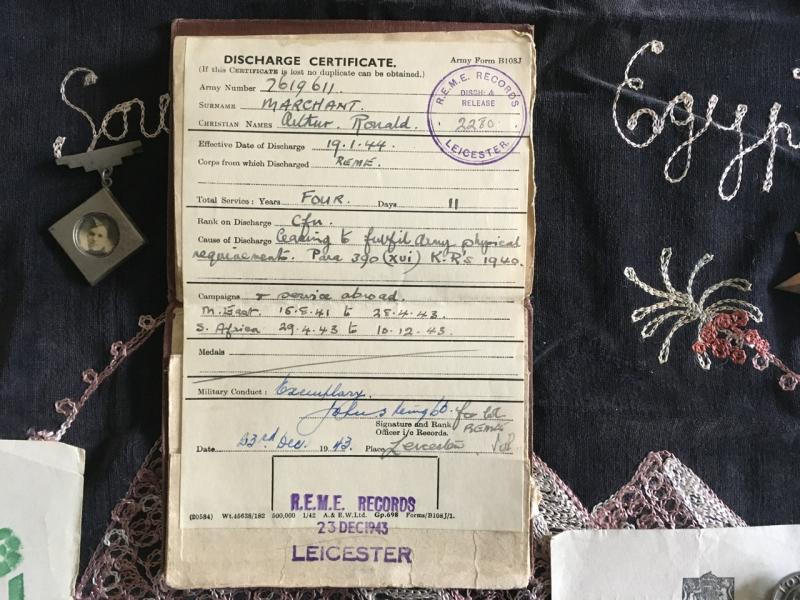 DISCHARGE CERTIFICATE.
Army Form B108J
(If this CERTIFICATE is lost no duplicate can be obtained.)
Army Number 7619611
SURNAME MARCHANT.
CHRISTIAN NAMES Arthur. Ronald.
R.E.M.E. RECORDS
DISCH: &
RELEASE
2280
LEICESTER
Effective Date of Discharge 19.1.44.
Corps from which Discharged REME.
Total Service: Years FOUR. Days 11
Rank on Discharge Cfn.
Cause of Discharge Ceasing to fulfil Army physical
requirements. Para 390 (XVI) K.R's 1940.
Campaigns & service abroad.
M. East. 16.5.41 to 28.4.43.
S. Africa 29.4.43 to 10.12.43.
Medals
Military Conduct: Exemplary.
for Col
Signature and Rank
Officer i/c Records.
REME
Date 23rd Dec. 1943. Place Leicester
R.E.M.E. RECORDS
(20584) Wt.45638/182 500,000 1/42 A.& E.W.Ltd. Gp.698 Forms/B108J/1.
23 DEC 1943
LEICESTER
Sou
Egyp